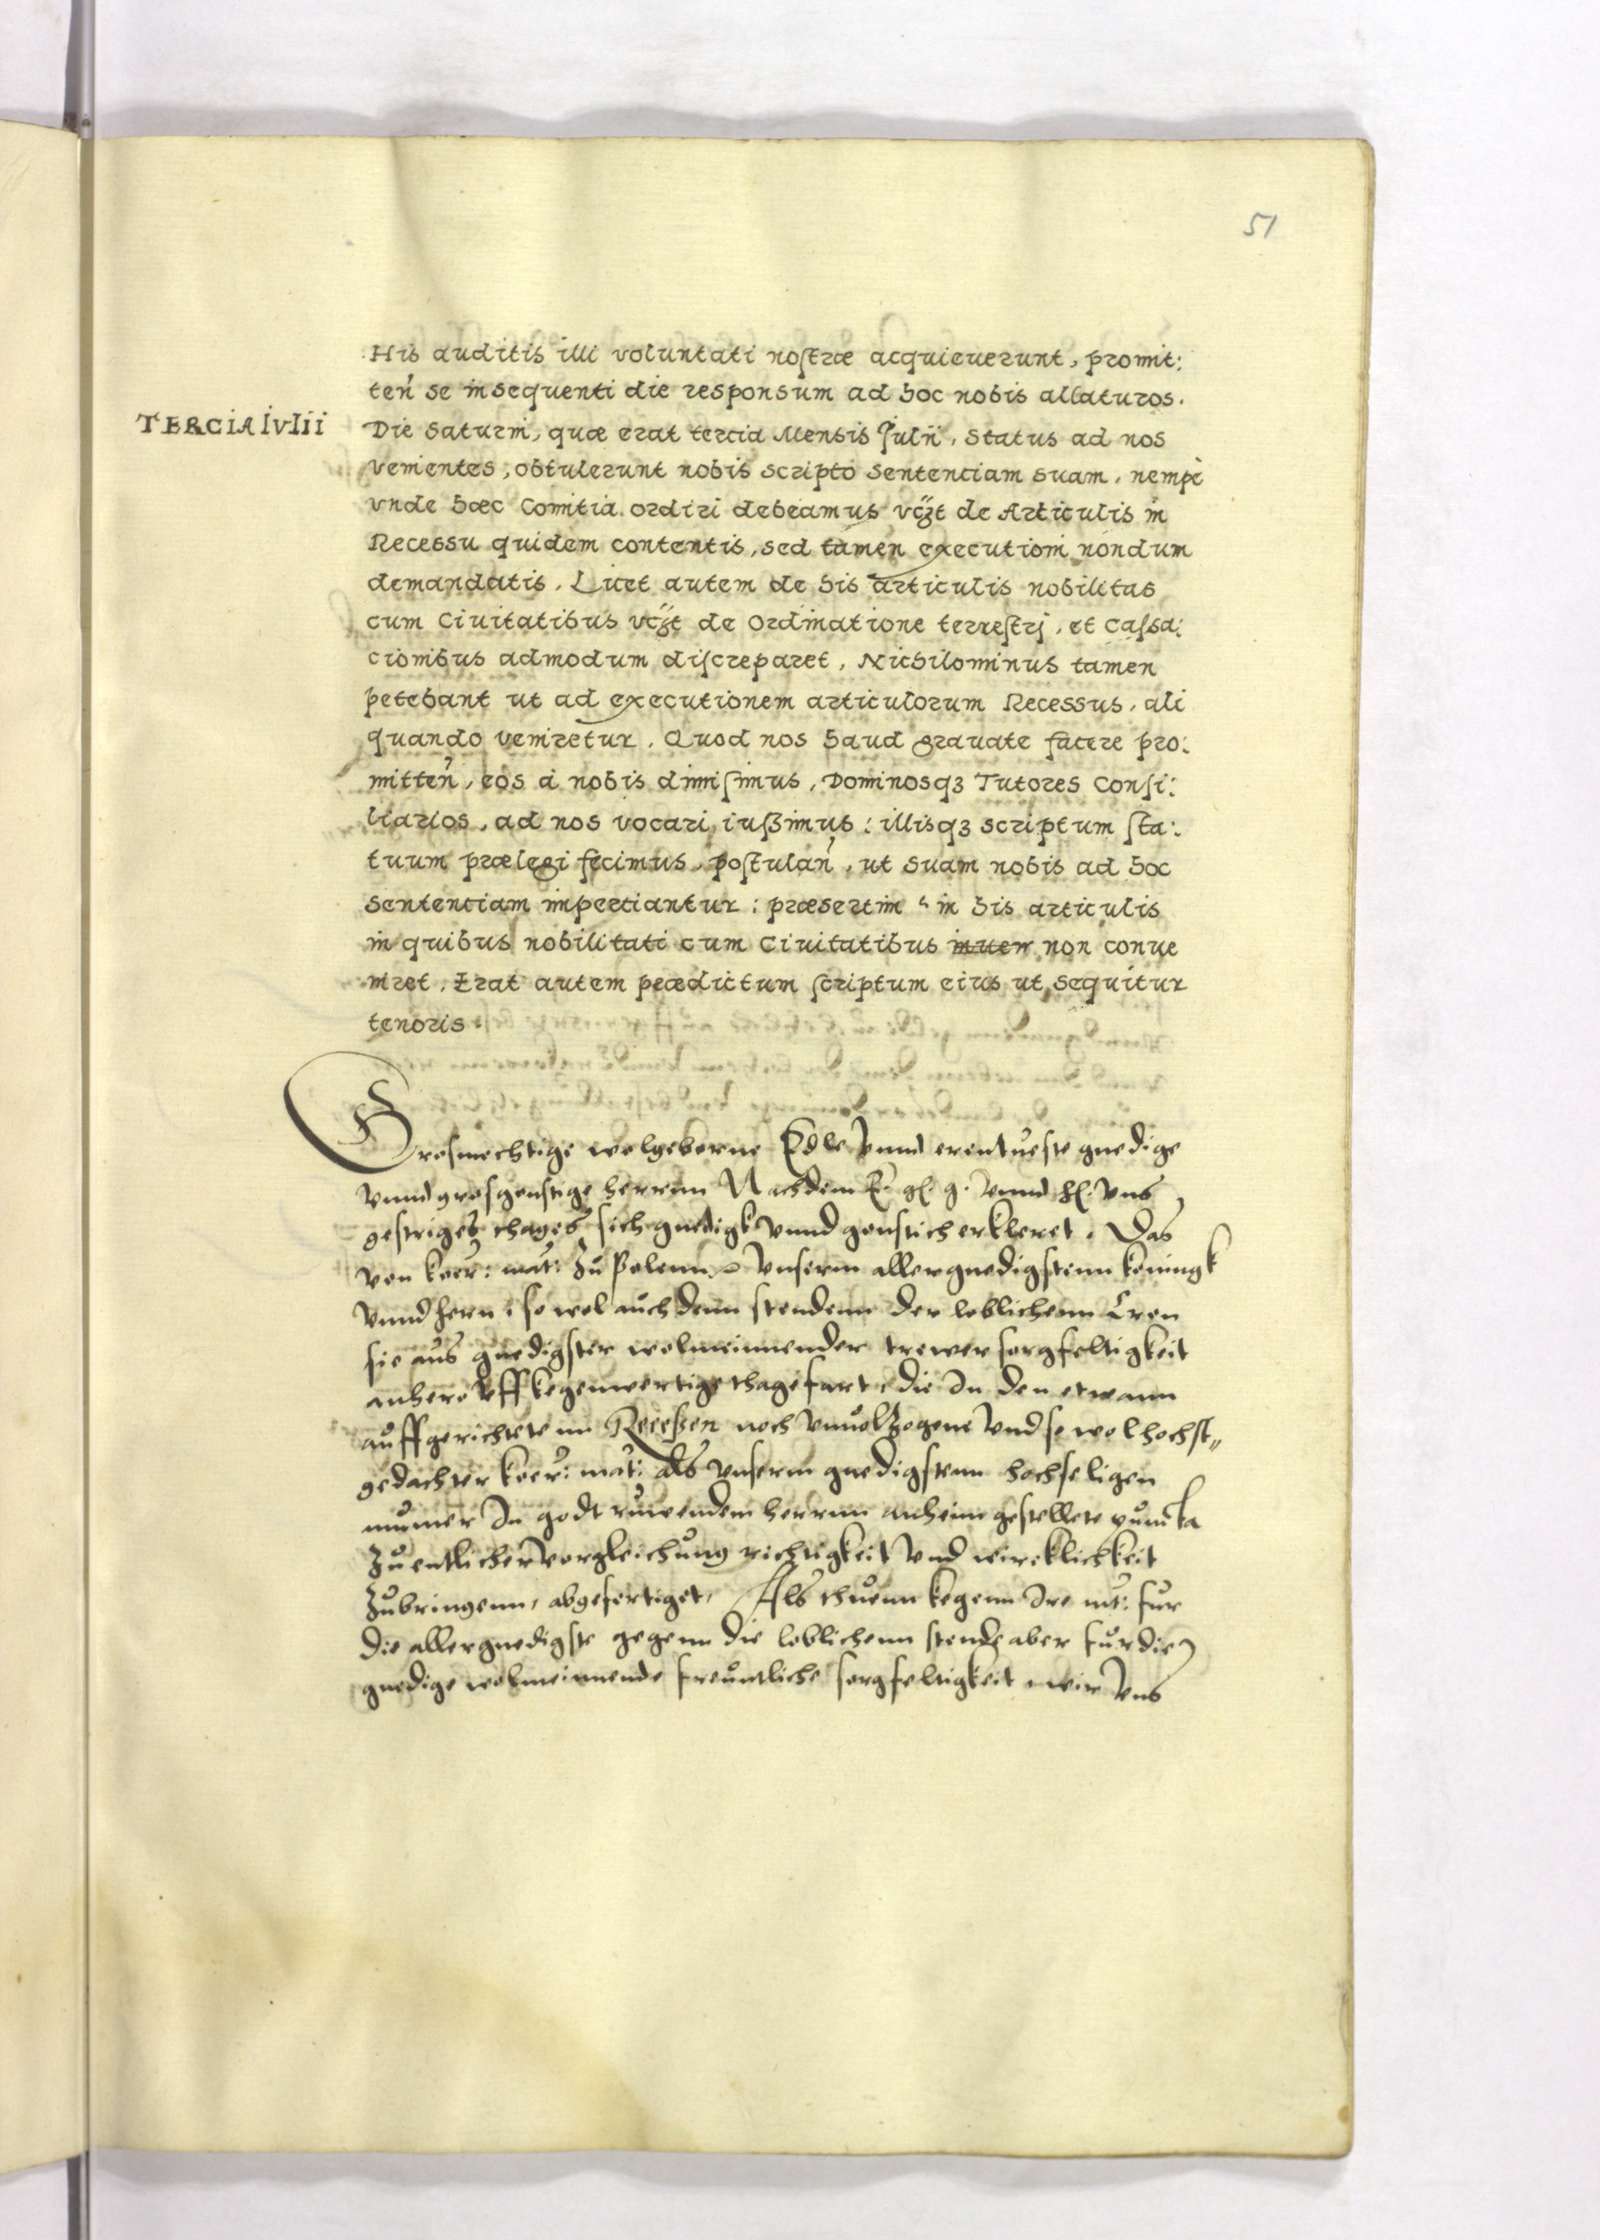 51
His auditis illi voluntati nostræ acquieuerunt, promit:
ten̄ se insequenti die responsum ad hoc nobis allaturos.
TERCIA IVlii
Die Saturni, quæ erat tercia Mensis Julii, Status ad nos
venientes, obtulerunt nobis scripto sententiam suam, nempè
vnde hæc Comitia ordiri debeamus vꝫt de Articulis in
Recessu quidem contentis, sed tamen executioni nondum
demandatis. Licet autem de his articulis nobilitas
cum Ciuitatibus vꝫt de Ordinatione terrestrj, et Cassa:
cionibus admodum discreparet, Nichilominus tamen
petebant ut ad executionem articulorum Recessus, ali
quando veniretur. Quod nos haud grauate facere pro:
mitten̄, eos à nobis dimisimus, Dominosqꝫ Tutores Consi:
liarios, ad nos vocari iussimus: illisqꝫ scriptum sta:
tuum prælegi fecimus, postulan̄, ut suam nobis ad hoc
sententiam impertiantur: præsertim in his articulis
in quibus nobilitati cum Ciuitatibus inuen non conue
niret. Erat autem prædictum scriptum eius ut sequitur
tenoris.
Grosmechtige wolgeborne Edle vnnd erentueste gnedige
vnnd grosgonstige herrnn Nachdem E. gl. g. vnnd hl. vns
gestriges thages sich gnedigk vnnd gonstich erkleret. Das
von koer: mat: zu Polenn vnserm allergnedigstenn koningk
vnnd hern, so wol auch denn stendenn der loblichenn Cron
sie aus gnedigster wolmeinender trewer sorgfeltigkeit
anhero vff kegenwertige thagefart, die In den etwann
auffgerichtetenn Recessen noch vnuolzogene vnd so wol hochst„
gedachter koer: mat: als vnserm gnedigstenn hochseligen
nunmer In godt ruwendem herrnn anheim gestellete puncta
zu entlicher vorgleichung richtigkeit vnd wircklickkeit
zubringenn, abgefertiget, Als thuenn kegenn Ire mt: fur
die allergnedigste gegenn die loblichenn stende aber fur die
gnedige wolmeinende freuntliche sorgfeltigkeit wir vns